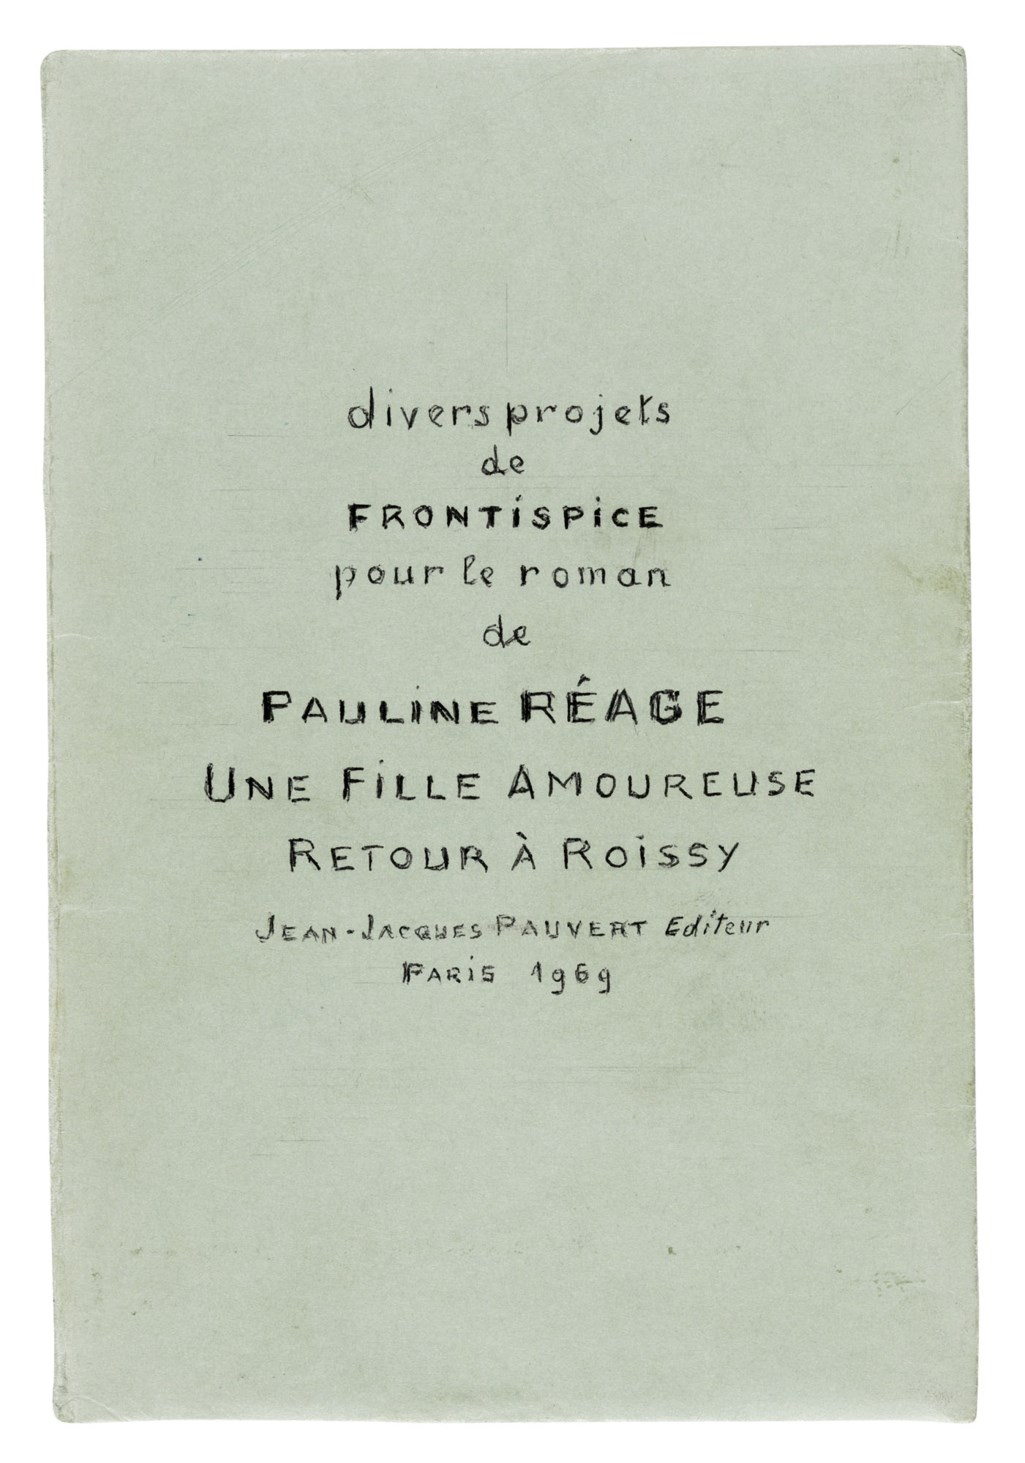 divers projets
de
FRONTISPICE
pour le roman
de
PAULINE RÉAGE
UNE FILLE AMOUREUSE
RETOUR À ROISSY
JEAN-JACQUES PAUVERT Editeur
PARIS 1969